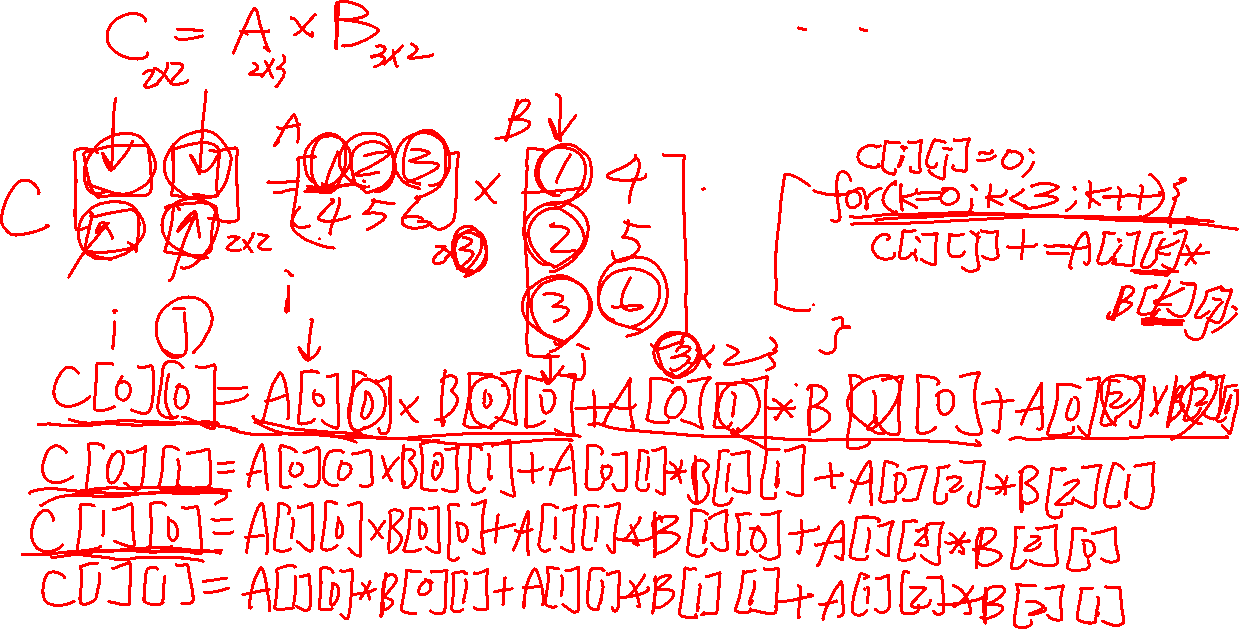 C = A × B
2×2 2×3 3×2
A B
C = 1 2 3 × 1 4
4 5 6 2 5
2×2 2×3 3 6
3×2
C[i][j]=0;
for(k=0;k<3;k++){
C[i][j]+=A[i][k]*
B[k][j];
}
i j i j
C[0][0]=A[0][0]×B[0][0]+A[0][1]*B[1][0]+A[0][2]×B[2][0]
C[0][1]=A[0][0]×B[0][1]+A[0][1]*B[1][1]+A[0][2]*B[2][1]
C[1][0]=A[1][0]×B[0][0]+A[1][1]*B[1][0]+A[1][2]*B[2][0]
C[1][1]=A[1][0]*B[0][1]+A[1][1]*B[1][1]+A[1][2]*B[2][1]